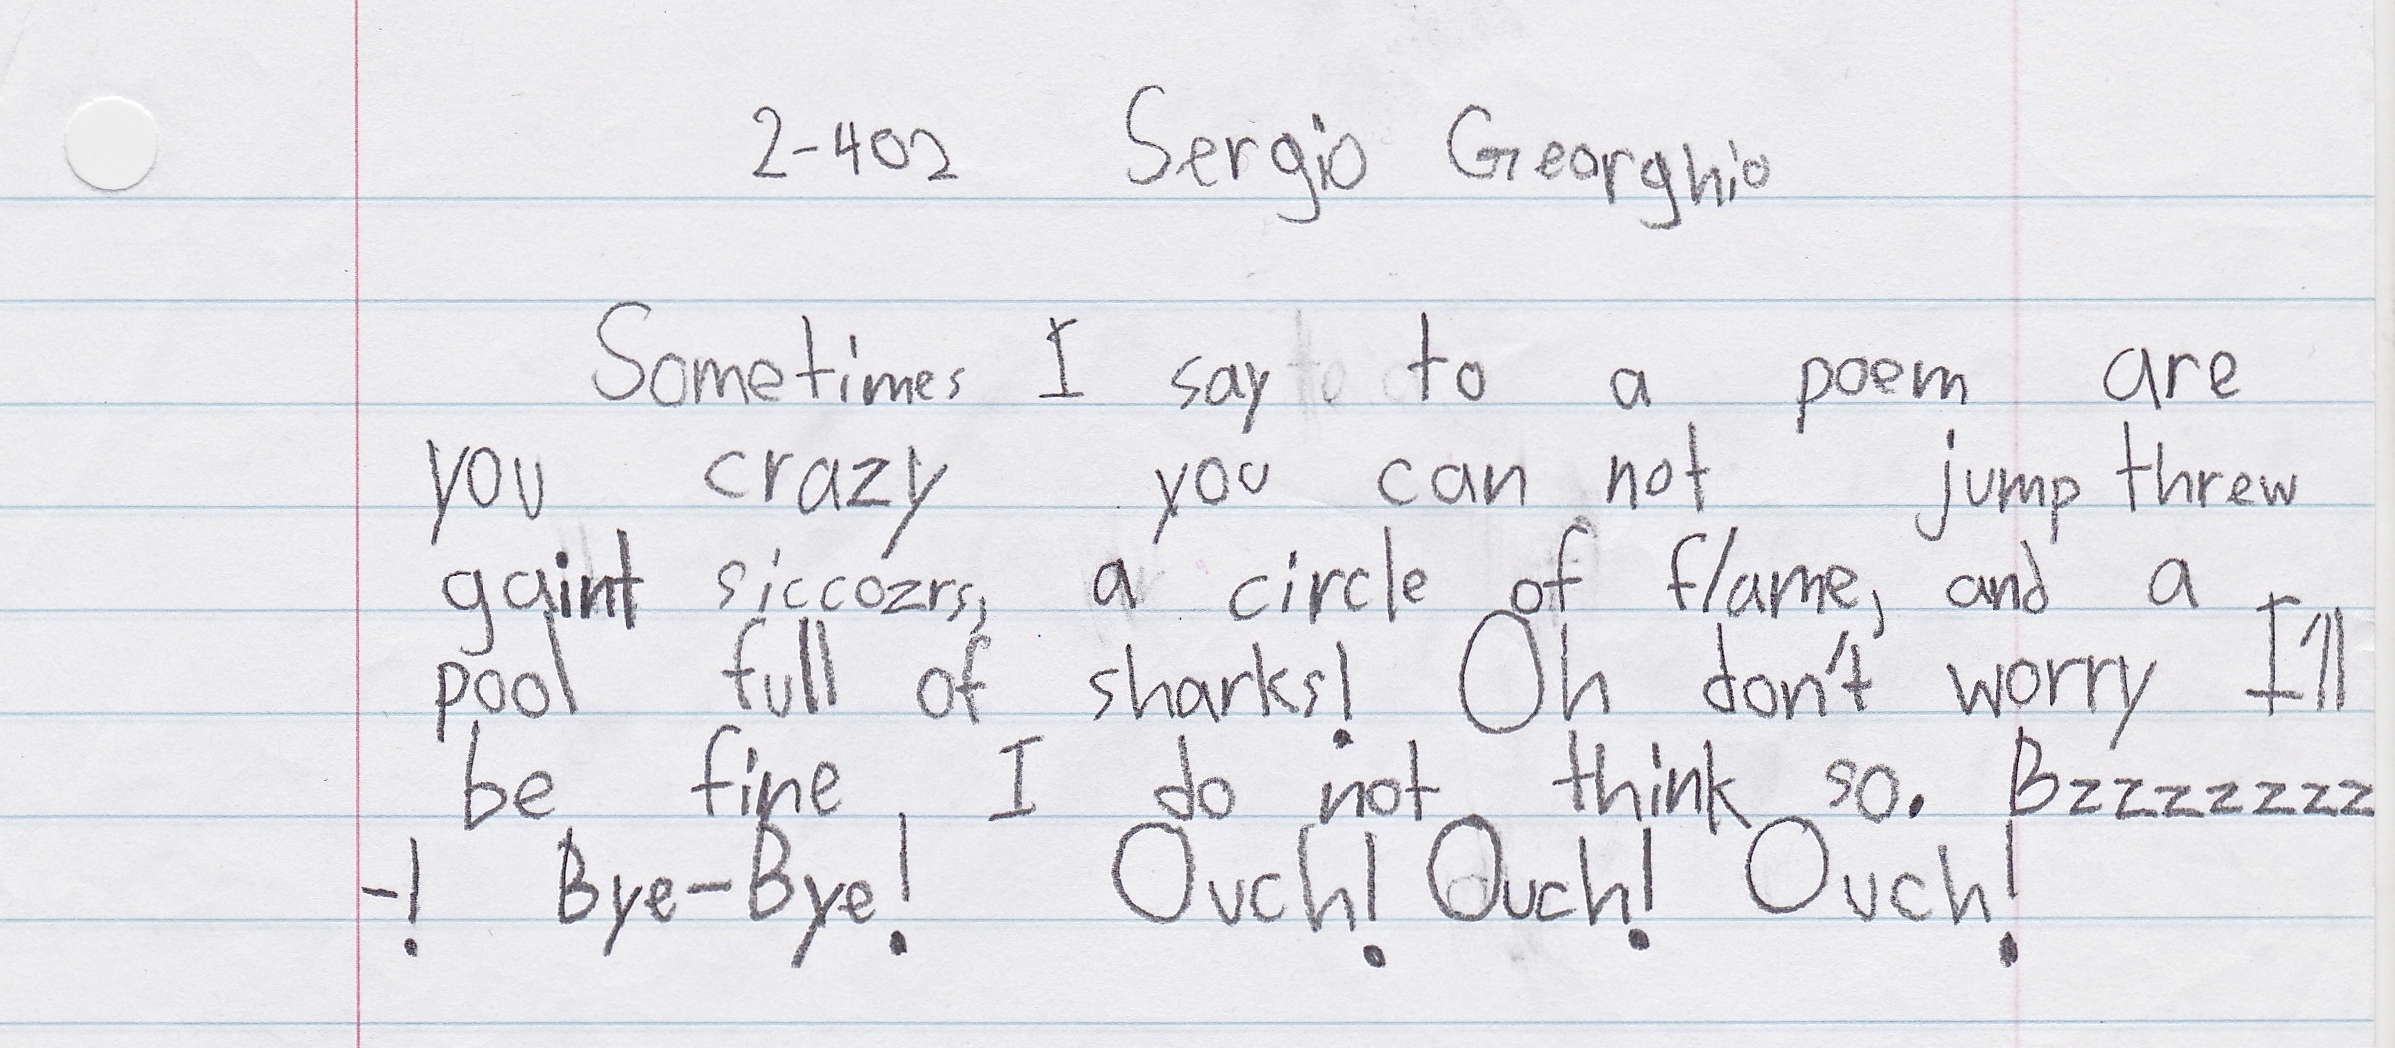 2-402 Sergio Georghio
Sometimes I say to a poem are
you crazy you can not jump threw
gaint siccozrs, a circle of flame, and a
pool full of sharks! Oh don't worry I'll
be fine I do not think so. Bzzzzzzzz
-! Bye-Bye! Ouch! Ouch! Ouch!